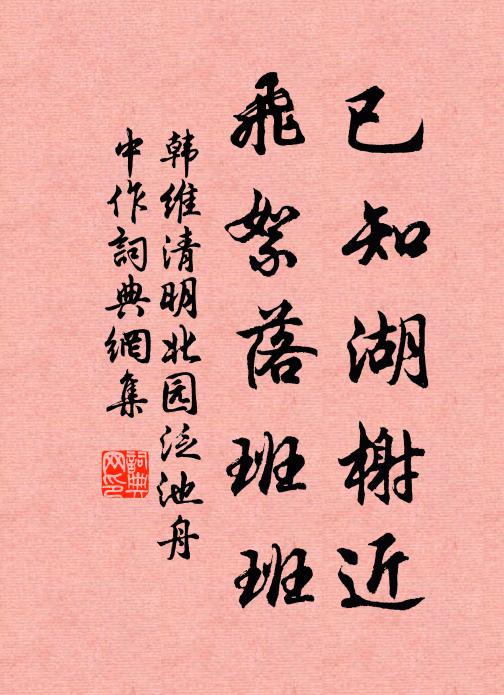 已知湖榭近
飛絮落班班
韩维清明北园泛池舟
中作詞典網集
詞典網印